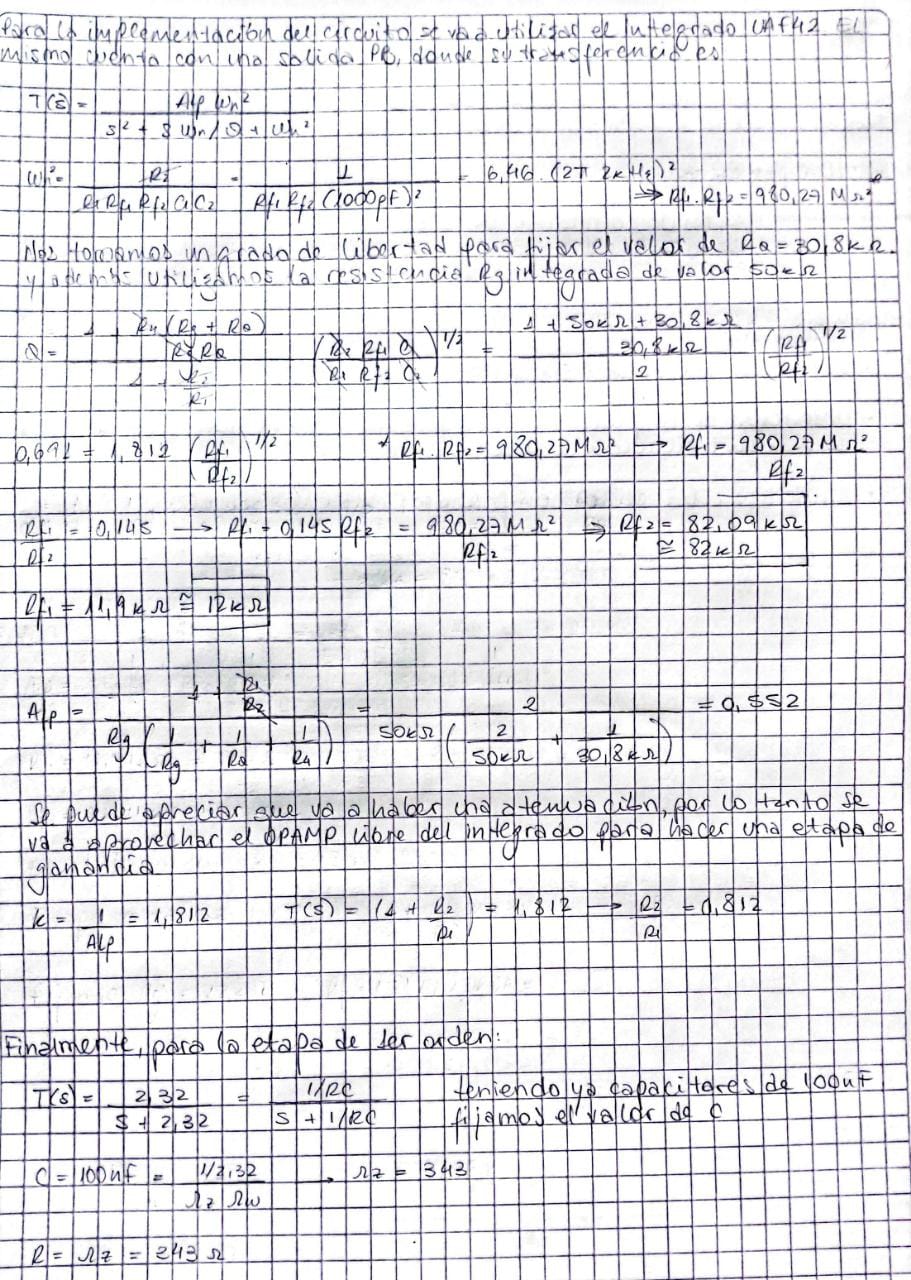 Para la implementación del circuito se va a utilizar el integrado UAF42 EL
mismo cuenta con una salida PB, donde su transferencia es
T(s) = Alp Wn² / (s² + s Wn/Q + Wn²)
Wn² = R2 / (R1 Rf1 Rf2 C1 C2) = 1 / (Rf1 Rf2 (1000pF)²) = 6,46 · (2π 2kHz)²
⇒ Rf1 · Rf2 = 980,27 MΩ²
Nos tomamos un grado de libertad para fijar el valor de RQ = 30,8kΩ.
y además utilizamos la resistencia Rg integrada de valor 50kΩ
Q = (1 + R4 (Rg + RQ) / (Rg RQ)) / (1 + R2/R1) (R2 Rf1 C1 / (R1 Rf2 C2))^1/2 = (1 + 50kΩ + 30,8kΩ / 30,8kΩ) / 2 (Rf1/Rf2)^1/2
0,691 = 1,812 (Rf1/Rf2)^1/2 * Rf1 · Rf2 = 980,27MΩ² → Rf1 = 980,27 MΩ² / Rf2
Rf1/Rf2 = 0,145 → Rf1 = 0,145 Rf2 = 980,27 MΩ² / Rf2 ⇒ Rf2 = 82,09kΩ
≅ 82kΩ
Rf1 = 11,9kΩ ≅ 12kΩ
Alp = (1 + R1/R2) / (Rg (1/Rg + 1/RQ + 1/R4)) = 2 / (50kΩ (2/50kΩ + 1/30,8kΩ)) = 0,552
Se puede apreciar que va a haber una atenuación, por lo tanto se
va a aprovechar el OPAMP libre del integrado para hacer una etapa de
ganancia
K = 1/Alp = 1,812 T(s) = (1 + R2/R1) = 1,812 → R2/R1 = 0,812
Finalmente, para la etapa de 1er orden:
T(s) = 2,32 / (s + 2,32) = 1/RC / (s + 1/RC) teniendo ya capacitores de 100nF
fijamos el valor de C
C = 100nF = 1/2,32 / (Ωz Ωw) → Ωz = 343
R = Ωz = 343 Ω